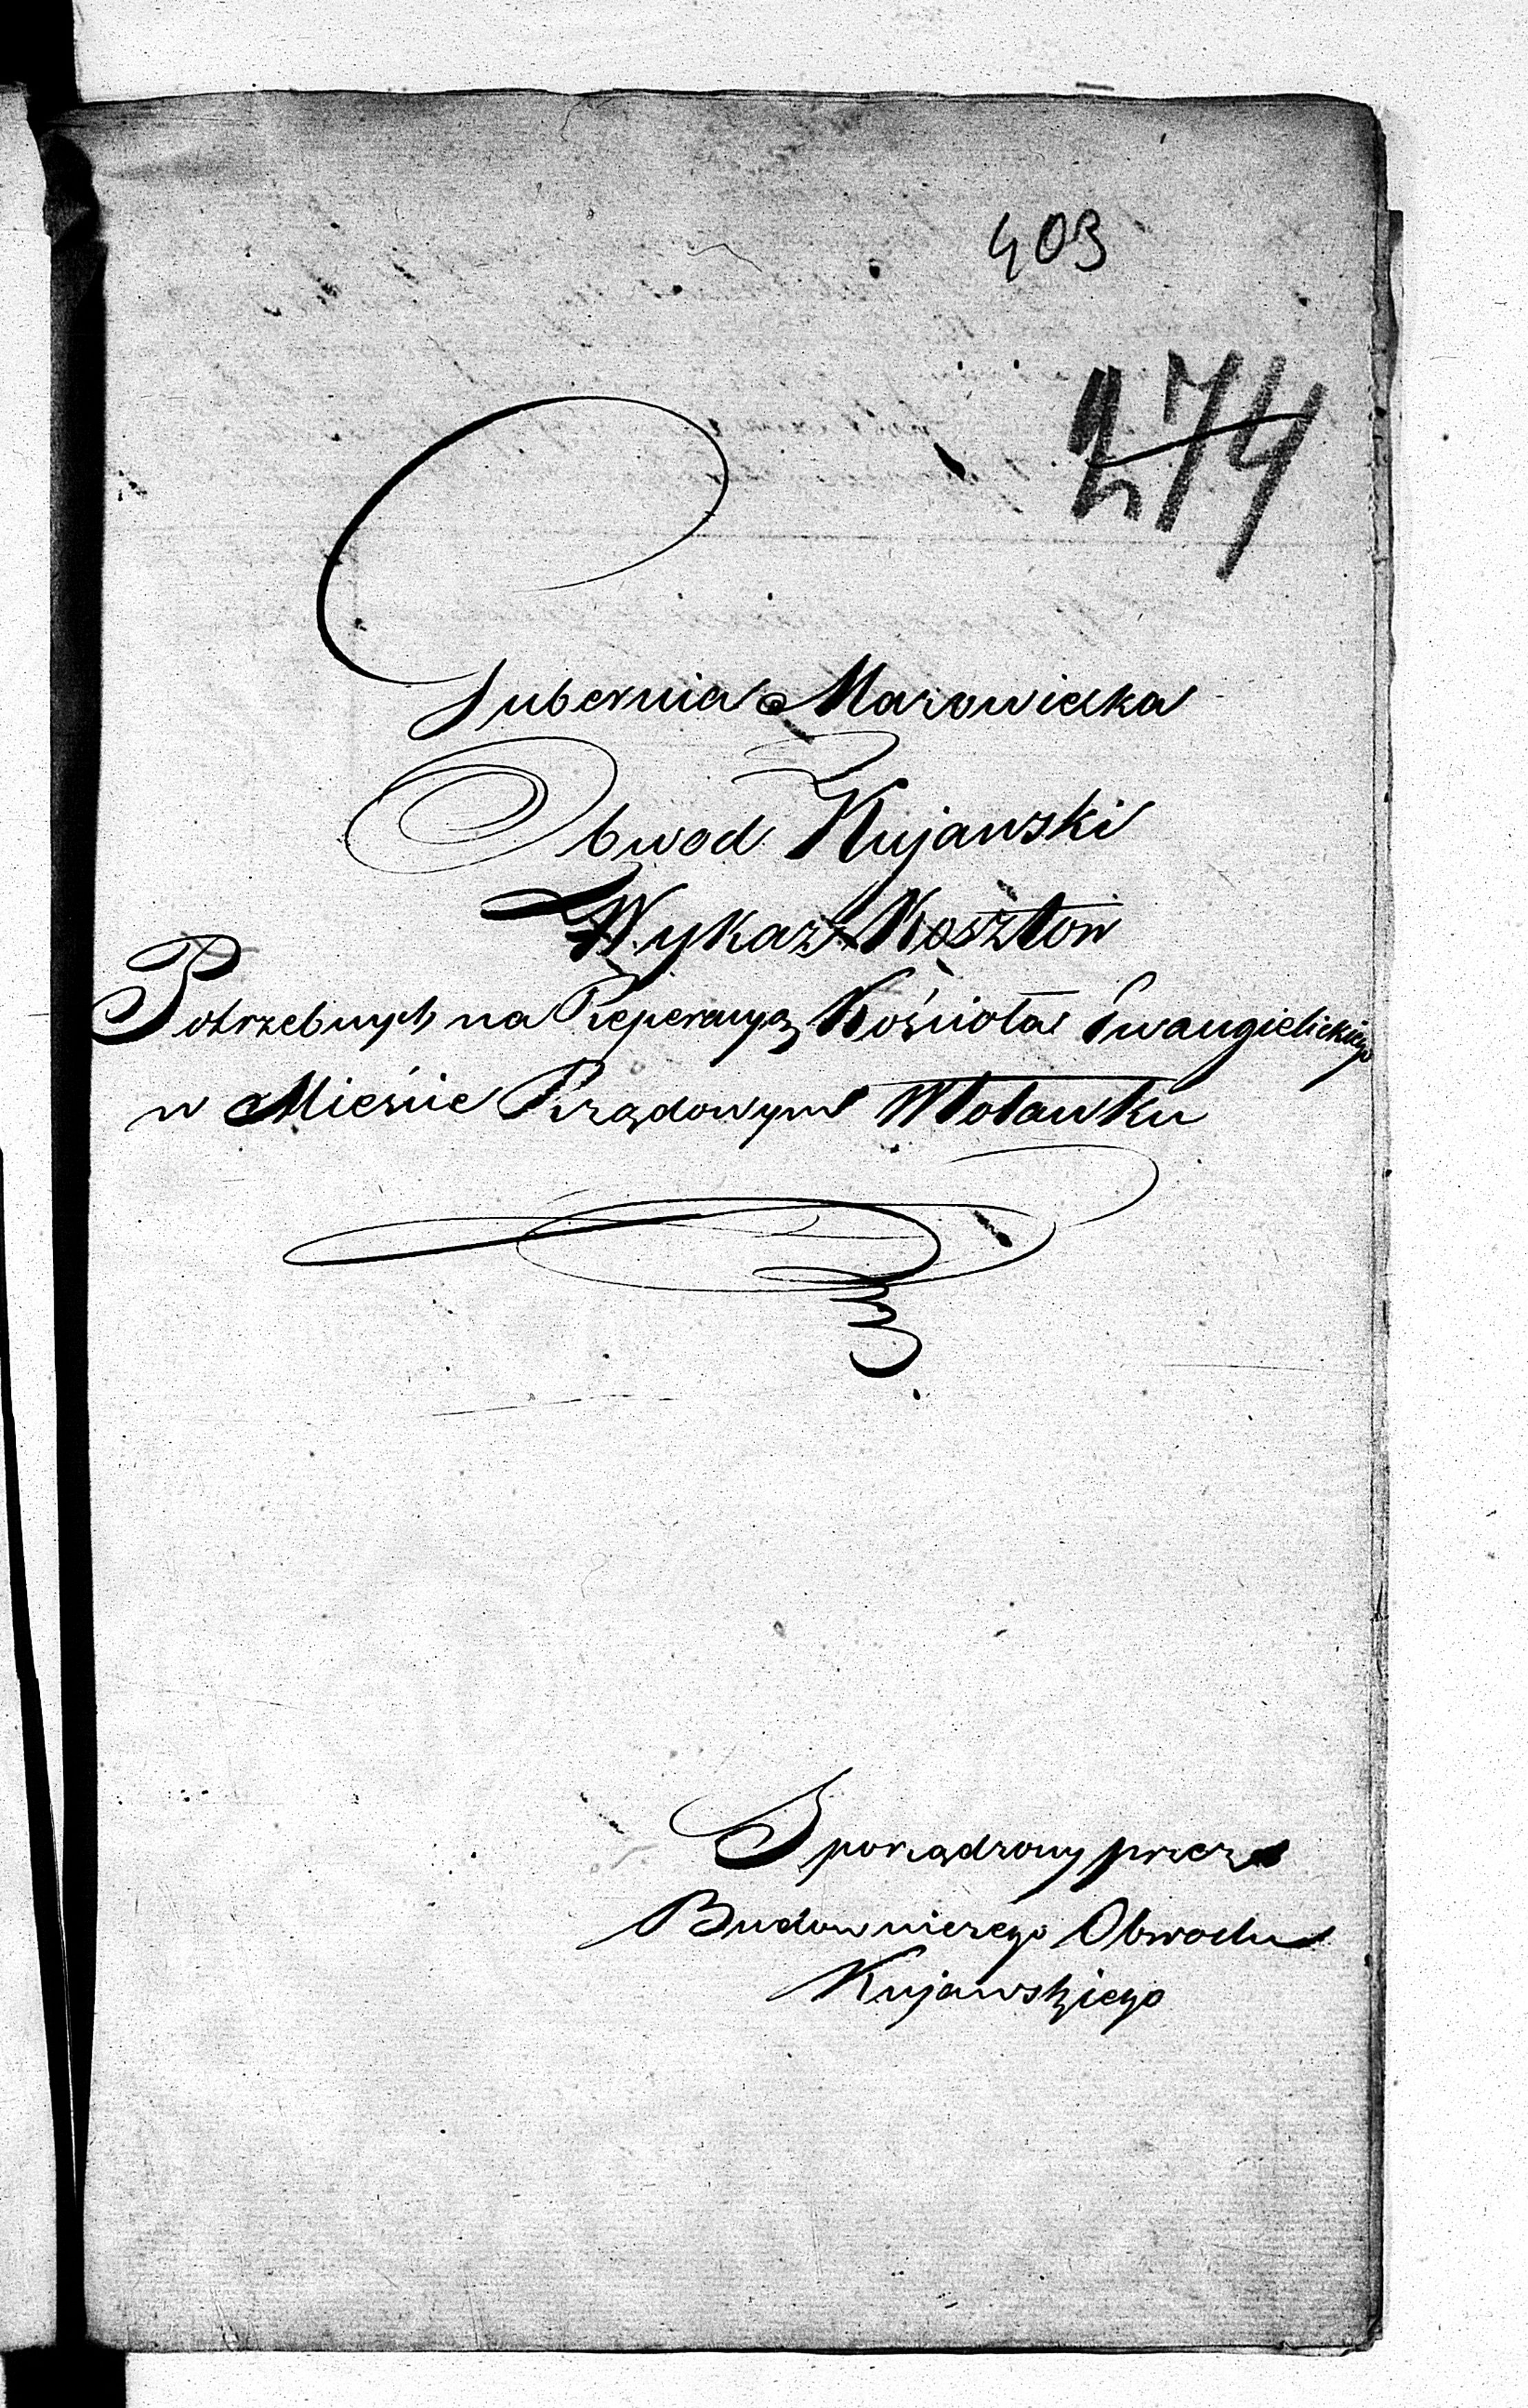 403
274
Gubernia Mazowiecka
Obwod Kujawski
Wykaz Kosztow
Potrzebnych na Reperacyą Kościoła Ewangielickiego
w Mieście Rządowym Wlolawku
Sporządzony przez
Budowniczego Obwodu
Kujawskiego